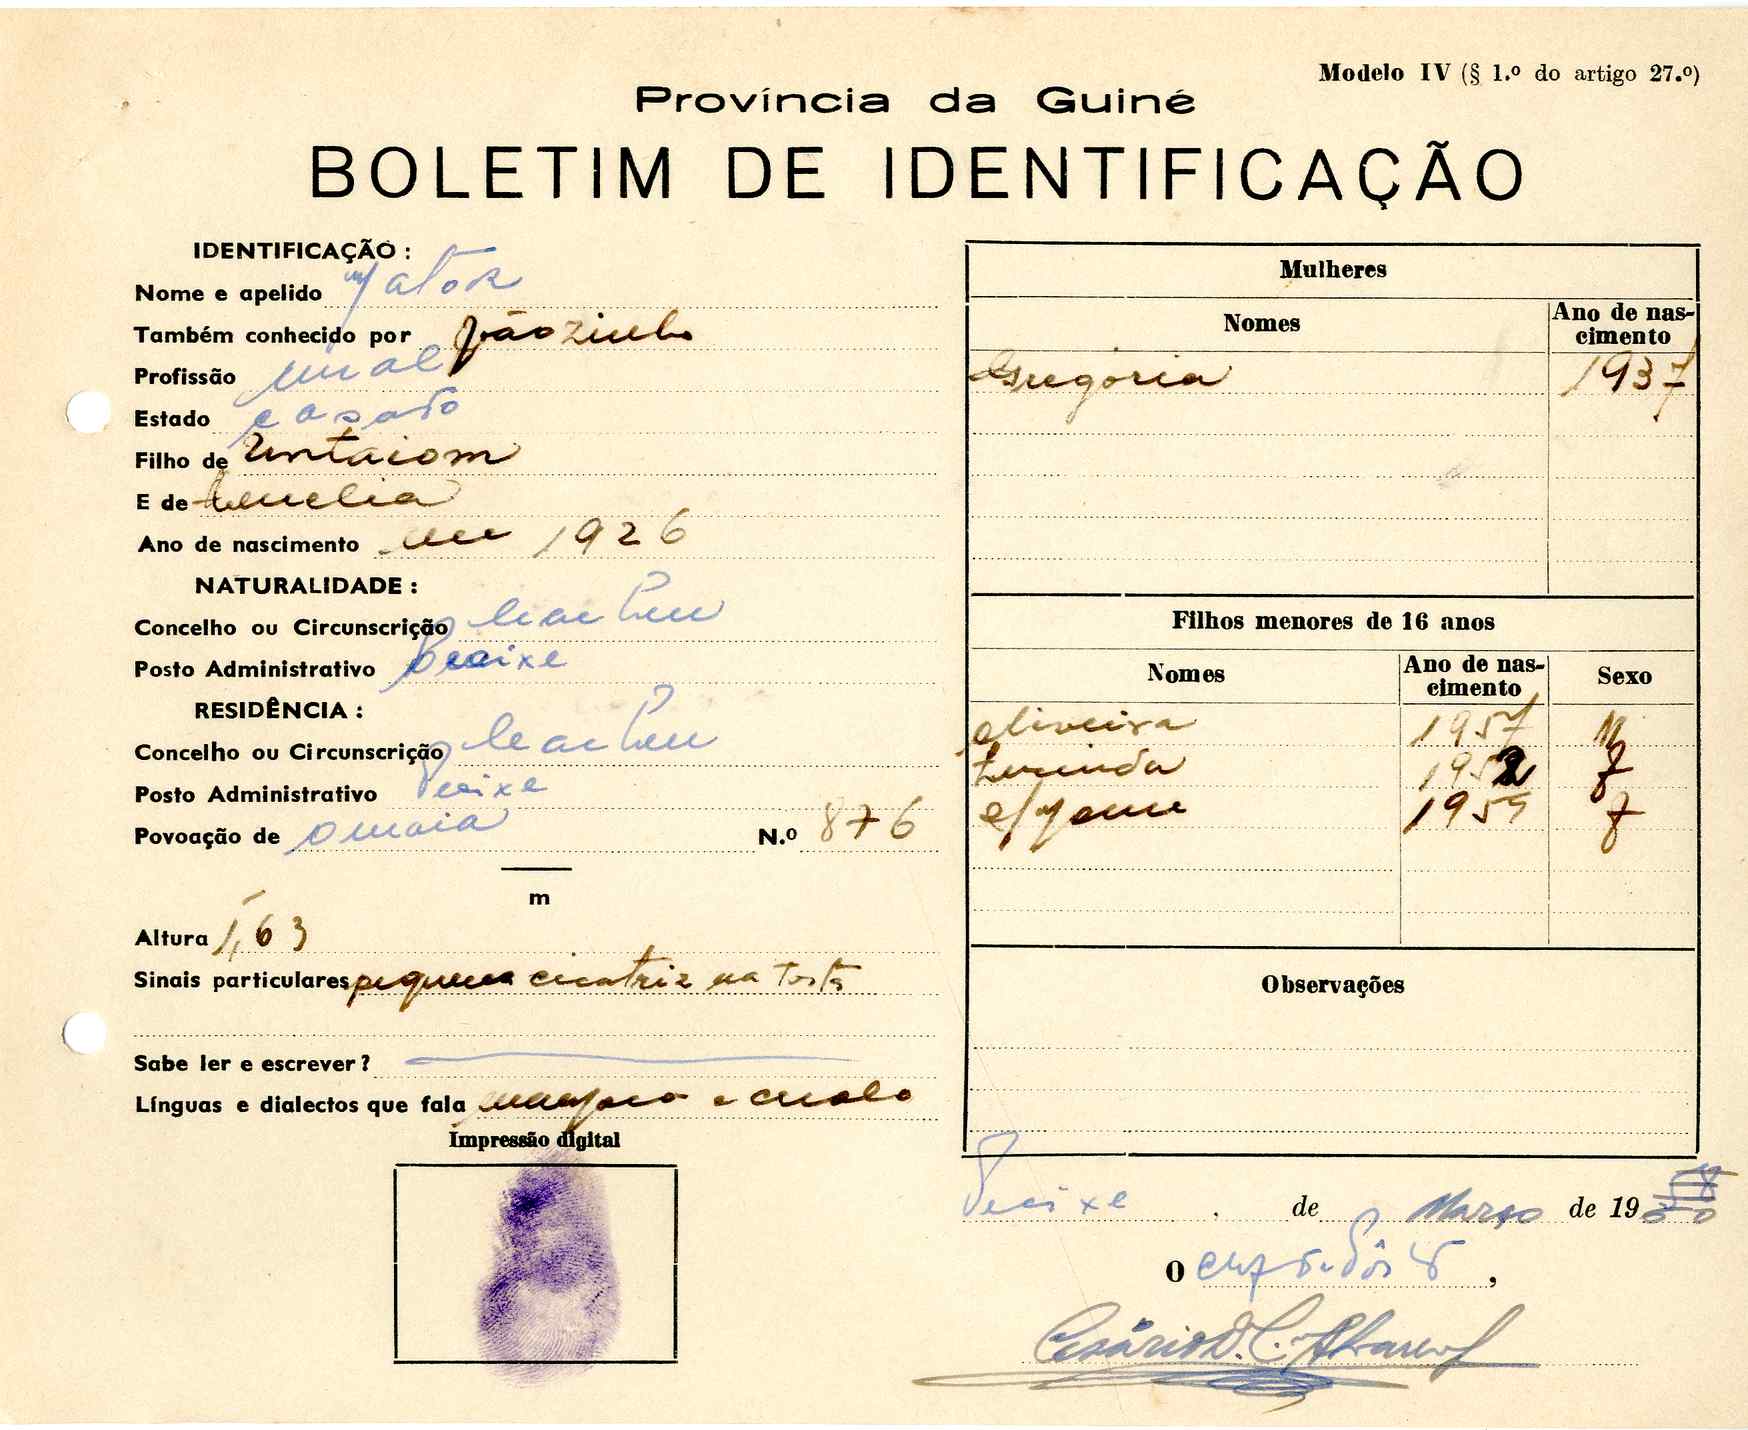 Modelo IV (§ 1.º do artigo 27.º)
Província da Guiné
BOLETIM DE IDENTIFICAÇÃO
IDENTIFICAÇÃO :
Nome e apelido
Também conhecido por Jãozinho
Profissão rural
Estado casado
Filho de Untaiom
E de
Ano de nascimento em 1926
NATURALIDADE :
Concelho ou Circunscrição Cacheu
Posto Administrativo Pecixe
RESIDÊNCIA :
Concelho ou Circunscrição Cacheu
Posto Administrativo Pecixe
Povoação de N.º 876
m
Altura 1,63
Sinais particulares pequena cicatriz na testa
Sabe ler e escrever?
Línguas e dialectos que fala manjaco e crioulo
Impressão digital
Mulheres
Nomes Ano de nas-
cimento
Gregória 1937
Filhos menores de 16 anos
Nomes Ano de nas-
cimento Sexo
Oliveira 1957 M
1952 F
1959 F
Observações
Pecixe , de Março de 19
O chefe de Pôsto,
Cesário D. C. Alvarenga